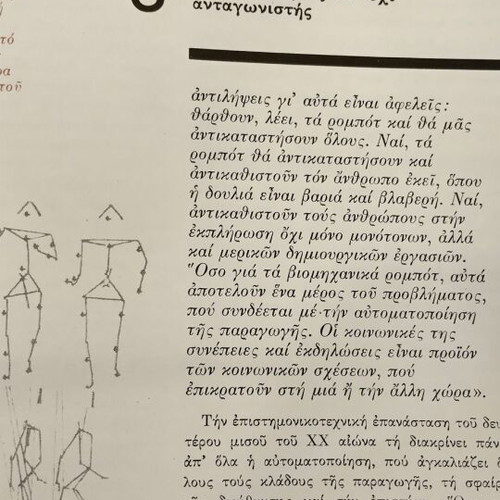 ἀνταγωνιστής
τό
τοῦ
ἀντιλήψεις γι' αὐτά εἶναι ἀφελεῖς:
θάρθουν, λέει, τά ρομπότ καί θά μᾶς
ἀντικαταστήσουν ὅλους. Ναί, τά
ρομπότ θά ἀντικαταστήσουν καί
ἀντικαθιστοῦν τόν ἄνθρωπο ἐκεῖ, ὅπου
ἡ δουλιά εἶναι βαριά καί βλαβερή. Ναί,
ἀντικαθιστοῦν τούς ἀνθρώπους στήν
ἐκπλήρωση ὄχι μόνο μονότονων, ἀλλά
καί μερικῶν δημιουργικῶν ἐργασιῶν.
Ὅσο γιά τά βιομηχανικά ρομπότ, αὐτά
ἀποτελοῦν ἕνα μέρος τοῦ προβλήματος,
πού συνδέεται μέ τήν αὐτοματοποίηση
τῆς παραγωγῆς. Οἱ κοινωνικές της
συνέπειες καί ἐκδηλώσεις εἶναι προϊόν
τῶν κοινωνικῶν σχέσεων, πού
ἐπικρατοῦν στή μιά ἤ τήν ἄλλη χώρα».
Τήν ἐπιστημονικοτεχνική ἐπανάσταση τοῦ δευ
τέρου μισοῦ τοῦ XX αἰώνα τή διακρίνει πάν
ἀπ' ὅλα ἡ αὐτοματοποίηση, πού ἀγκαλιάζει
λους τούς κλάδους τῆς παραγωγῆς, τή σφαίρ